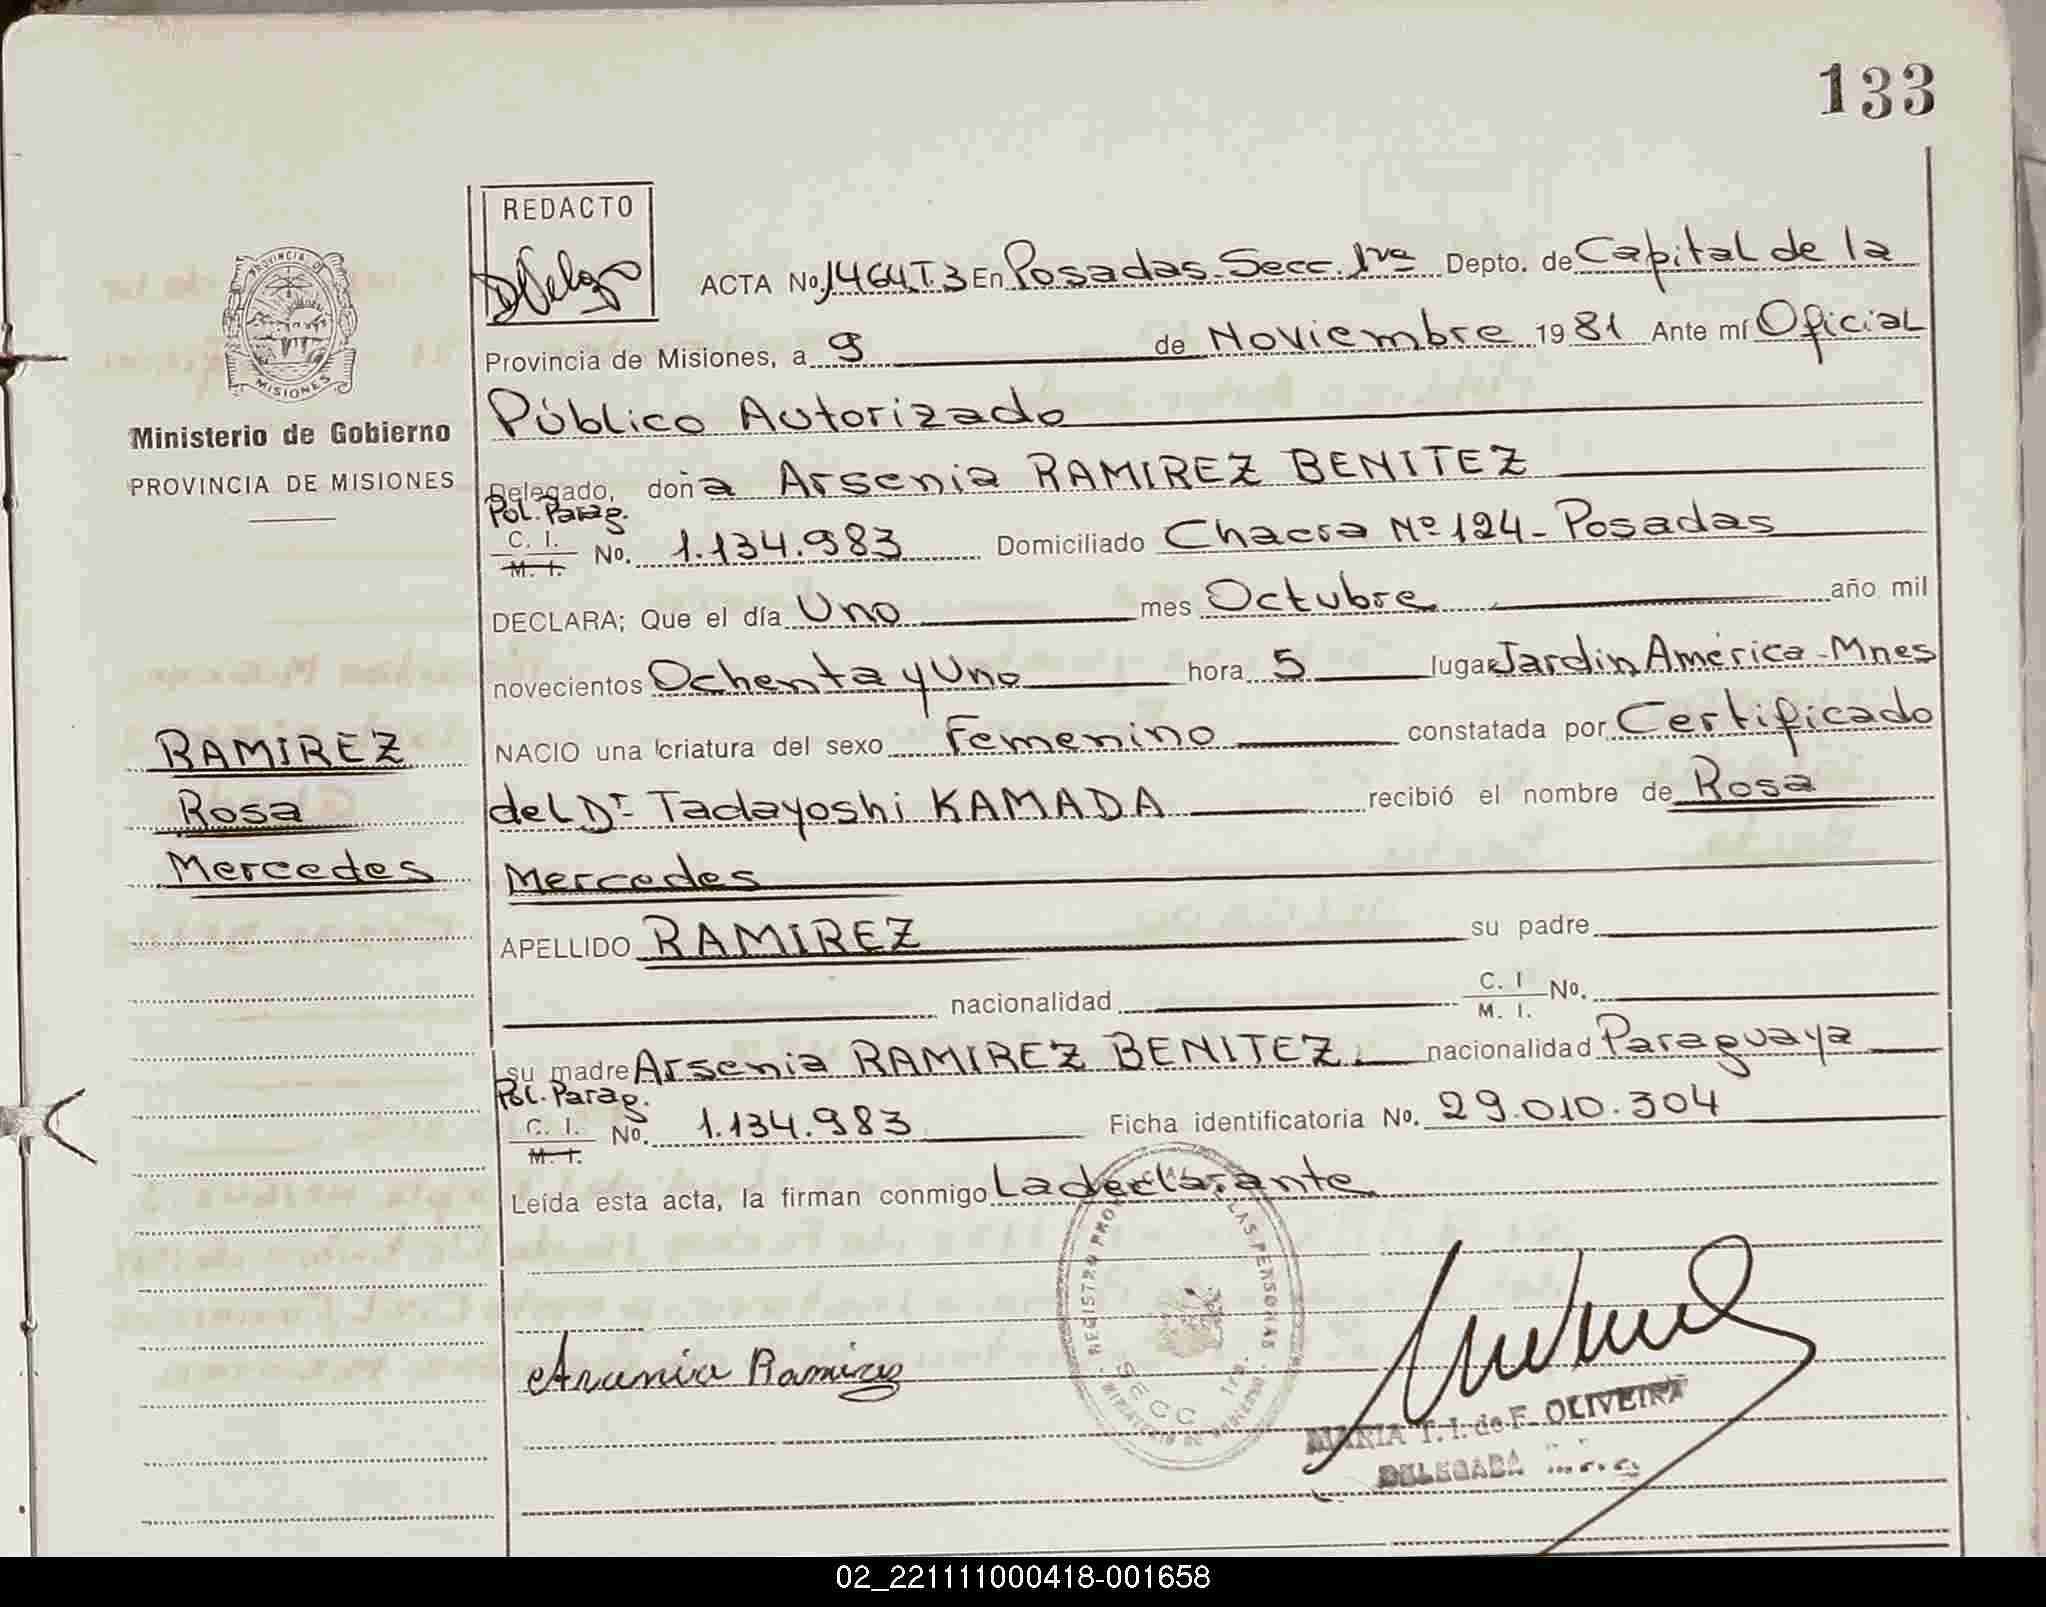 133
REDACTO
ACTA No. 1464 T.3 En Posadas. Secc. 1ra Depto. de Capital de la
Provincia de Misiones, a 9 de Noviembre 1981 Ante mí Oficial
Público Autorizado
Delegado, doña Arsenia RAMIREZ BENITEZ
Pol. Parag.
C. I. M. I. No. 1.134.983 Domiciliado Chacra Nº 124 - Posadas
DECLARA; Que el día Uno mes Octubre año mil
novecientos Ochenta y Uno hora 5 lugar Jardín América - Mnes
NACIO una criatura del sexo Femenino constatada por Certificado
del Dr Tadayoshi KAMADA recibió el nombre de Rosa
Mercedes
APELLIDO RAMIREZ su padre
nacionalidad C. I M. I. No.
su madre Arsenia RAMIREZ BENITEZ. nacionalidad Paraguaya
Pol. Parag.
C. I. M. I. No. 1.134.983 Ficha identificatoria No. 29.010.304
Leída esta acta, la firman conmigo La declarante
PROVINCIA DE
MISIONES
Ministerio de Gobierno
PROVINCIA DE MISIONES
RAMIREZ
Rosa
Mercedes
Arsenia Ramirez
REGISTRO PROVINCIAL LAS PERSONAS
SECC 1ra.
MINISTERIO DE GOBIERNO
MARIA T. I. de F. OLIVEIRA
DELEGADA
02_221111000418-001658